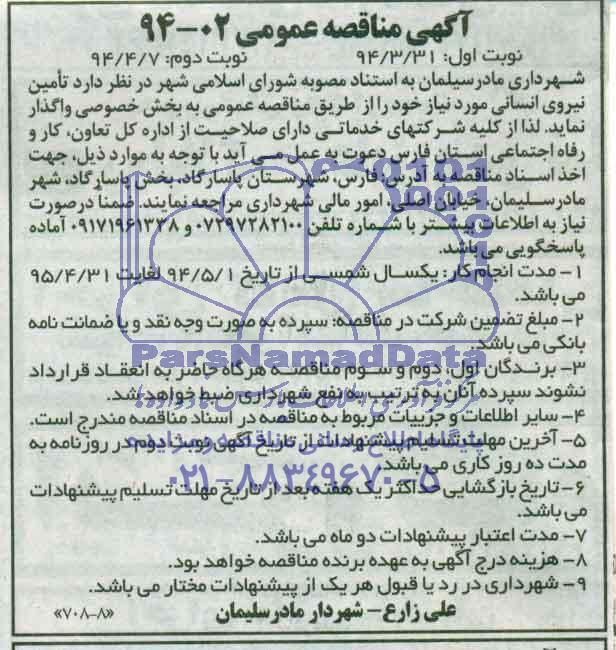 آگهی مناقصه عمومی ۰۲-۹۴
نوبت اول: ۹۴/۳/۳۱ نوبت دوم: ۹۴/۴/۷
شهرداری مادرسلیمان به استناد مصوبه شورای اسلامی شهر در نظر دارد تأمین
نیروی انسانی مورد نیاز خود را از طریق مناقصه عمومی به بخش خصوصی واگذار
نماید. لذا از کلیه شرکتهای خدماتی دارای صلاحیت از اداره کل تعاون، کار و
رفاه اجتماعی استان فارس دعوت به عمل می آید با توجه به موارد ذیل، جهت
اخذ اسناد مناقصه به آدرس فارس، شهرستان پاسارگاد، بخش پاسارگاد، شهر
مادرسلیمان، خیابان اصلی، امور مالی شهرداری مراجعه نمایند. ضمناً درصورت
نیاز به اطلاعات بیشتر با شماره تلفن ۰۷۲۹۷۲۸۲۱۰۰ و ۰۹۱۷۱۹۶۱۳۳۸ آماده
پاسخگویی می باشد.
۱- مدت انجام کار: یکسال شمسی از تاریخ ۹۴/۵/۱ لغایت ۹۵/۴/۳۱
می باشد.
۲- مبلغ تضمین شرکت در مناقصه: سپرده به صورت وجه نقد و یا ضمانت نامه
بانکی می باشد.
ParsNamadData
۳- برندگان اول، دوم و سوم مناقصه هرگاه حاضر به انعقاد قرارداد
نشوند سپرده آنان به ترتیب به نفع شهرداری ضبط خواهد شد.
۴- سایر اطلاعات و جزییات مربوط به مناقصه در اسناد مناقصه مندرج است.
۵- آخرین مهلت تسلیم پیشنهادات از تاریخ آگهی نوبت دوم در روزنامه به
مدت ده روز کاری می باشد.
۰۲۱-۸۸۳۴۹۶۷۰-۵
۶- تاریخ بازگشایی حداکثر یک هفته بعد از تاریخ مهلت تسلیم پیشنهادات
می باشد.
۷- مدت اعتبار پیشنهادات دو ماه می باشد.
۸- هزینه درج آگهی به عهده برنده مناقصه خواهد بود.
۹- شهرداری در رد یا قبول هر یک از پیشنهادات مختار می باشد.
علی زارع- شهردار مادرسلیمان
«۷۰۸-۸»